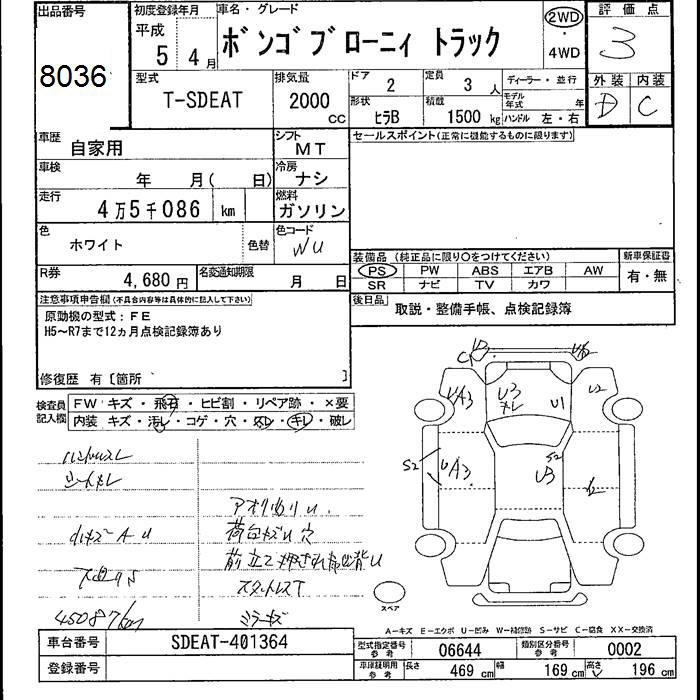 出品番号
8036
初度登録年月
平成
5年 4月
車名・グレード
ボンゴブローニィ トラック
2WD
・
4WD
評価点
3
型式
T-SDEAT
排気量
2000
CC
ドア
2
定員
3人
ディーラー・並行
モデル年式 年
形状
ヒラB
積載
1500 kg
ハンドル 左・右
外装 内装
D C
車歴
自家用
シフト
MT
セールスポイント(正常に機能するものに限ります)
車検
年 月( 日)
冷房
ナシ
走行
4万5千086 km
燃料
ガソリン
色
ホワイト
色替
色コード
WU
装備品 (純正品に限り○をつけてください)
PS PW ABS エアB AW
SR ナビ TV カワ
新車保証書
有・無
R券
4,680円
名変通知期限
月 日
後日品
取説・整備手帳、点検記録簿
注意事項申告欄(不具合内容等は具体的に記入して下さい)
原動機の型式:FE
H5~R7まで12ヵ月点検記録簿あり
修復歴 有 [箇所 ]
検査員記入欄
FW キズ・飛石・ヒビ割・リペア跡・×要
内装 キズ・汚レ・コゲ・穴・欠レ・キレ・破レ
UA3
U3
U1
U2
S2
UA3
S2
U3
シートスレ
スタットレスT
ミラーキズ
45087km
スペア
A-キズ E-エクボ U-凹み W-補修跡 S-サビ C-腐食 XX-交換済
車台番号
SDEAT-401364
登録番号
型式指定番号 参考
06644
類別区分番号 参考
0002
車庫証明用 参考
長さ 469 cm 幅 169 cm 高さ 196 cm